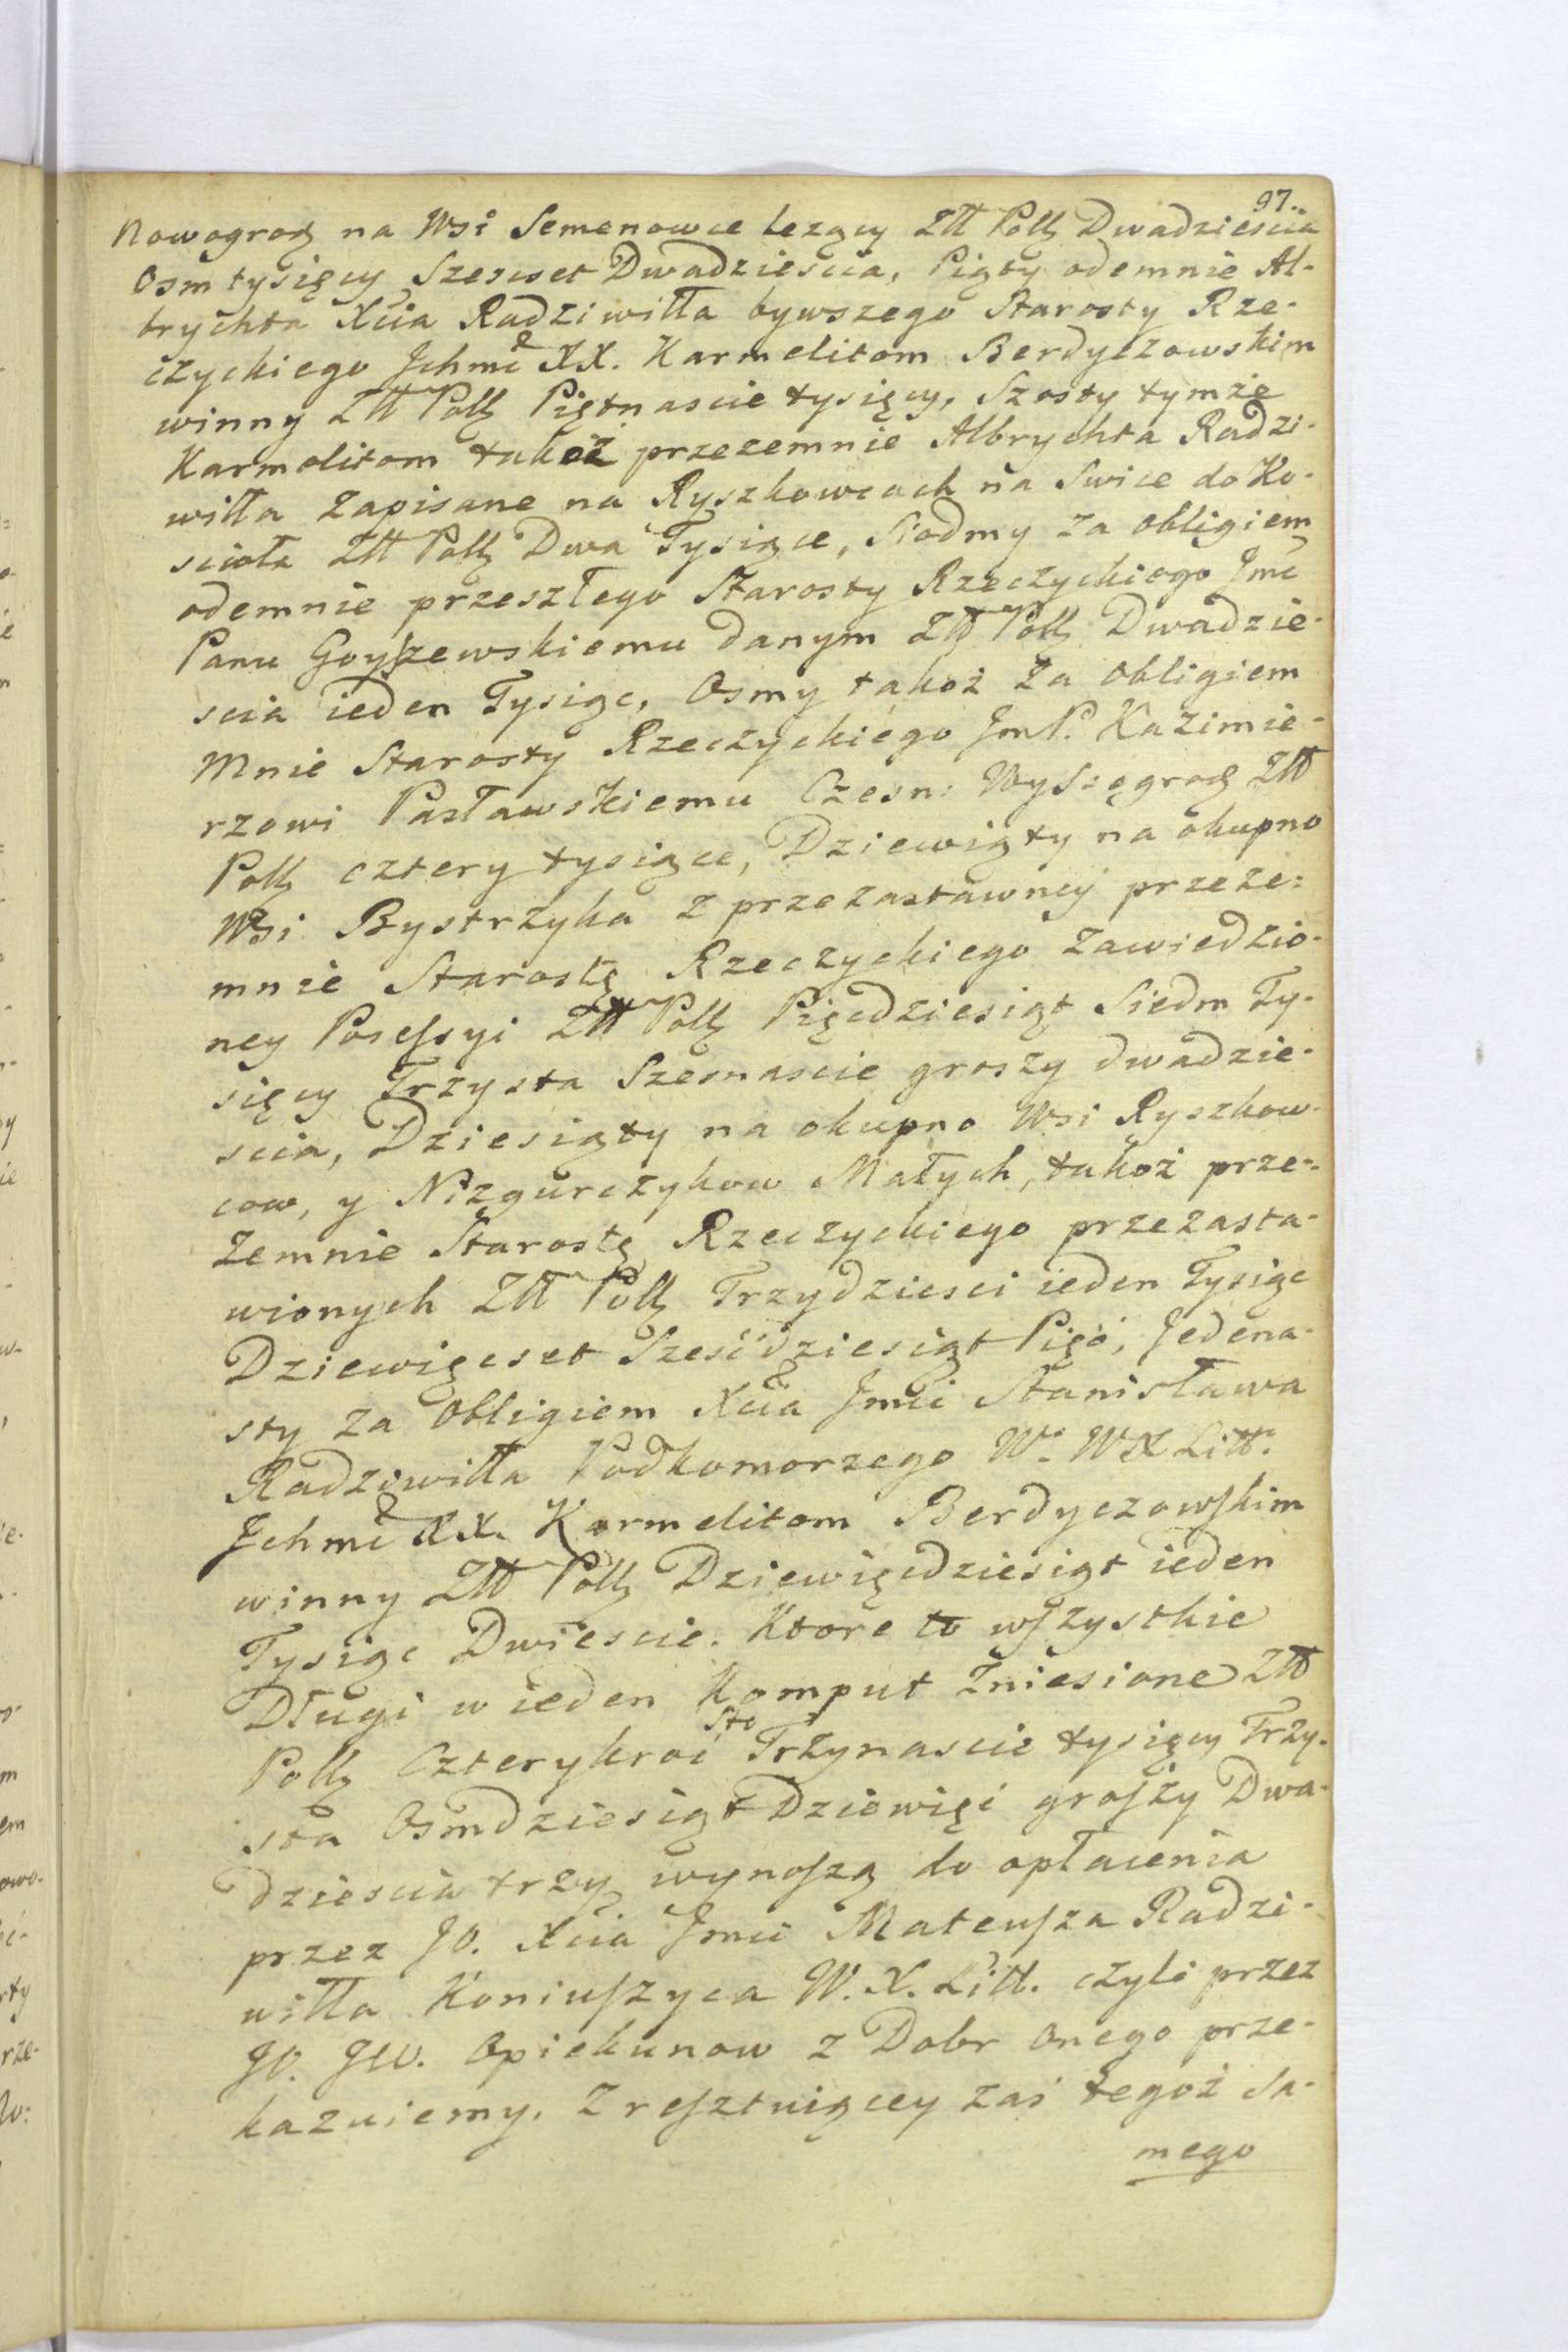 97.
Nowogrodz na Wsi Semenowce lezący Złł Polh Dwadziescia
Osm tysięcy Szescset Dwadziescia, Piąty odemnie Al-
brychta Xcia Radziwiłła bywszego Starosty Rze-
czyckiego Jchmć XX. Karmelitom Berdyczowskim
winny Złł Polh Piętnascie tysięcy, Szosty tymże
Karmelitom takoż przezemnie Albrychta Radzi-
wiłła Zapisane na Ryszkowcach na Swice do Ko-
scioła Złł Polh Dwa Tysiące, Siodmy za obligiem
odemnie przeszłego Starosty Rzeczyckiego Jmć
Panu Goyszewskiemu danym Złł Polh Dwadzie-
scia ieden Tysiąc, Osmy takoż Za obligiem
Mnie Starosty Rzeczyckiego JmP. Kazimie-
rzowi Pasławskiemu Czesn: Wyszęgrodz Złł
Polh cztery tysiące, Dziewiąty na okupno
Wsi Bystrzyka z przezastawney przeze=
mnie Starostę Rzeczyckiego Zawiedzio-
ney Possessyi Złł Polh Pięcdziesiąt Siedm Ty-
sięcy Trzysta Szesnascie groszy dwadzie-
scia, Dziesiąty na okupno Wsi Ryszkow-
cow, y Nizgurczykow Małych, takoż prze-
Zemnie Starostę Rzeczyckiego przezasta-
wionych Złł Polh Trzydziesci ieden Tysiąc
Dziewięcset Sześćdziesiąt Pięć, Jedena-
sty za Obligiem Xcia Jmci Stanisława
Radziwiłła Podkomorzego W: WX Litt:
Jchmć XX. Karmelitom Berdyczowskim
winny Złł Polh Dziewięcdziesiąt ieden
Tysiąc Dwiescie. Ktore to wszystkie
Długi w ieden Komput Zniesione Złł
Polh Czterykroć Sto Trzynascie tysięcy Trzy-
sta Osmdziesiąt Dziewięć groszy Dwa-
dziescia trzy wynoszą do opłacenia
przez JO. Xcia Jmci Mateusza Radzi-
wiłła Koniuszyca W. X. Litt. czyli przez
JO. JW. Opiekunow z Dobr onego prze-
kazuiemy. Z resztuiącey zaś tegoż sa-
mego